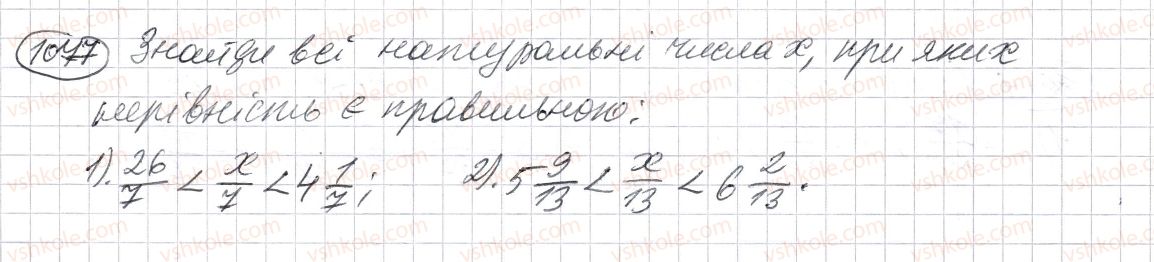 1047 Знайди всі натуральні числа x, при яких
нерівність є правильною:
1). 26/7 < x/7 < 4 1/7; 2). 5 9/13 < x/13 < 6 2/13.